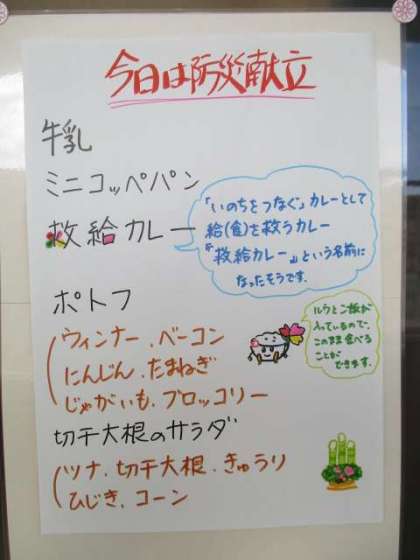 今日は防災献立
牛乳
ミニコッペパン
救給カレー
「いのちをつなぐ」カレーとして
給(食)を救うカレー
『救給カレー』という名前に
なったそうです。
ポトフ
ウィンナー、ベーコン
にんじん、たまねぎ
じゃがいも、ブロッコリー
ルウとご飯が
入っているので、
このまま食べる
ことが
できます。
切干大根のサラダ
ツナ、切干大根、きゅうり
ひじき、コーン